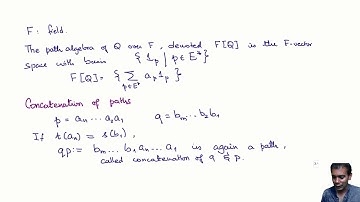 F: field.
The path algebra of Q over F, denoted F[Q] is the F-vector
space with basis { 1_p | p ∈ E* }
F[Q] = { ∑_{p∈E*} a_p 1_p }
Concatenation of paths
p = a_n ... a_2 a_1 q = b_m ... b_2 b_1
If t(a_n) = s(b_1),
qp := b_m ... b_1 a_n ... a_1 is again a path,
called concatenation of q & p.